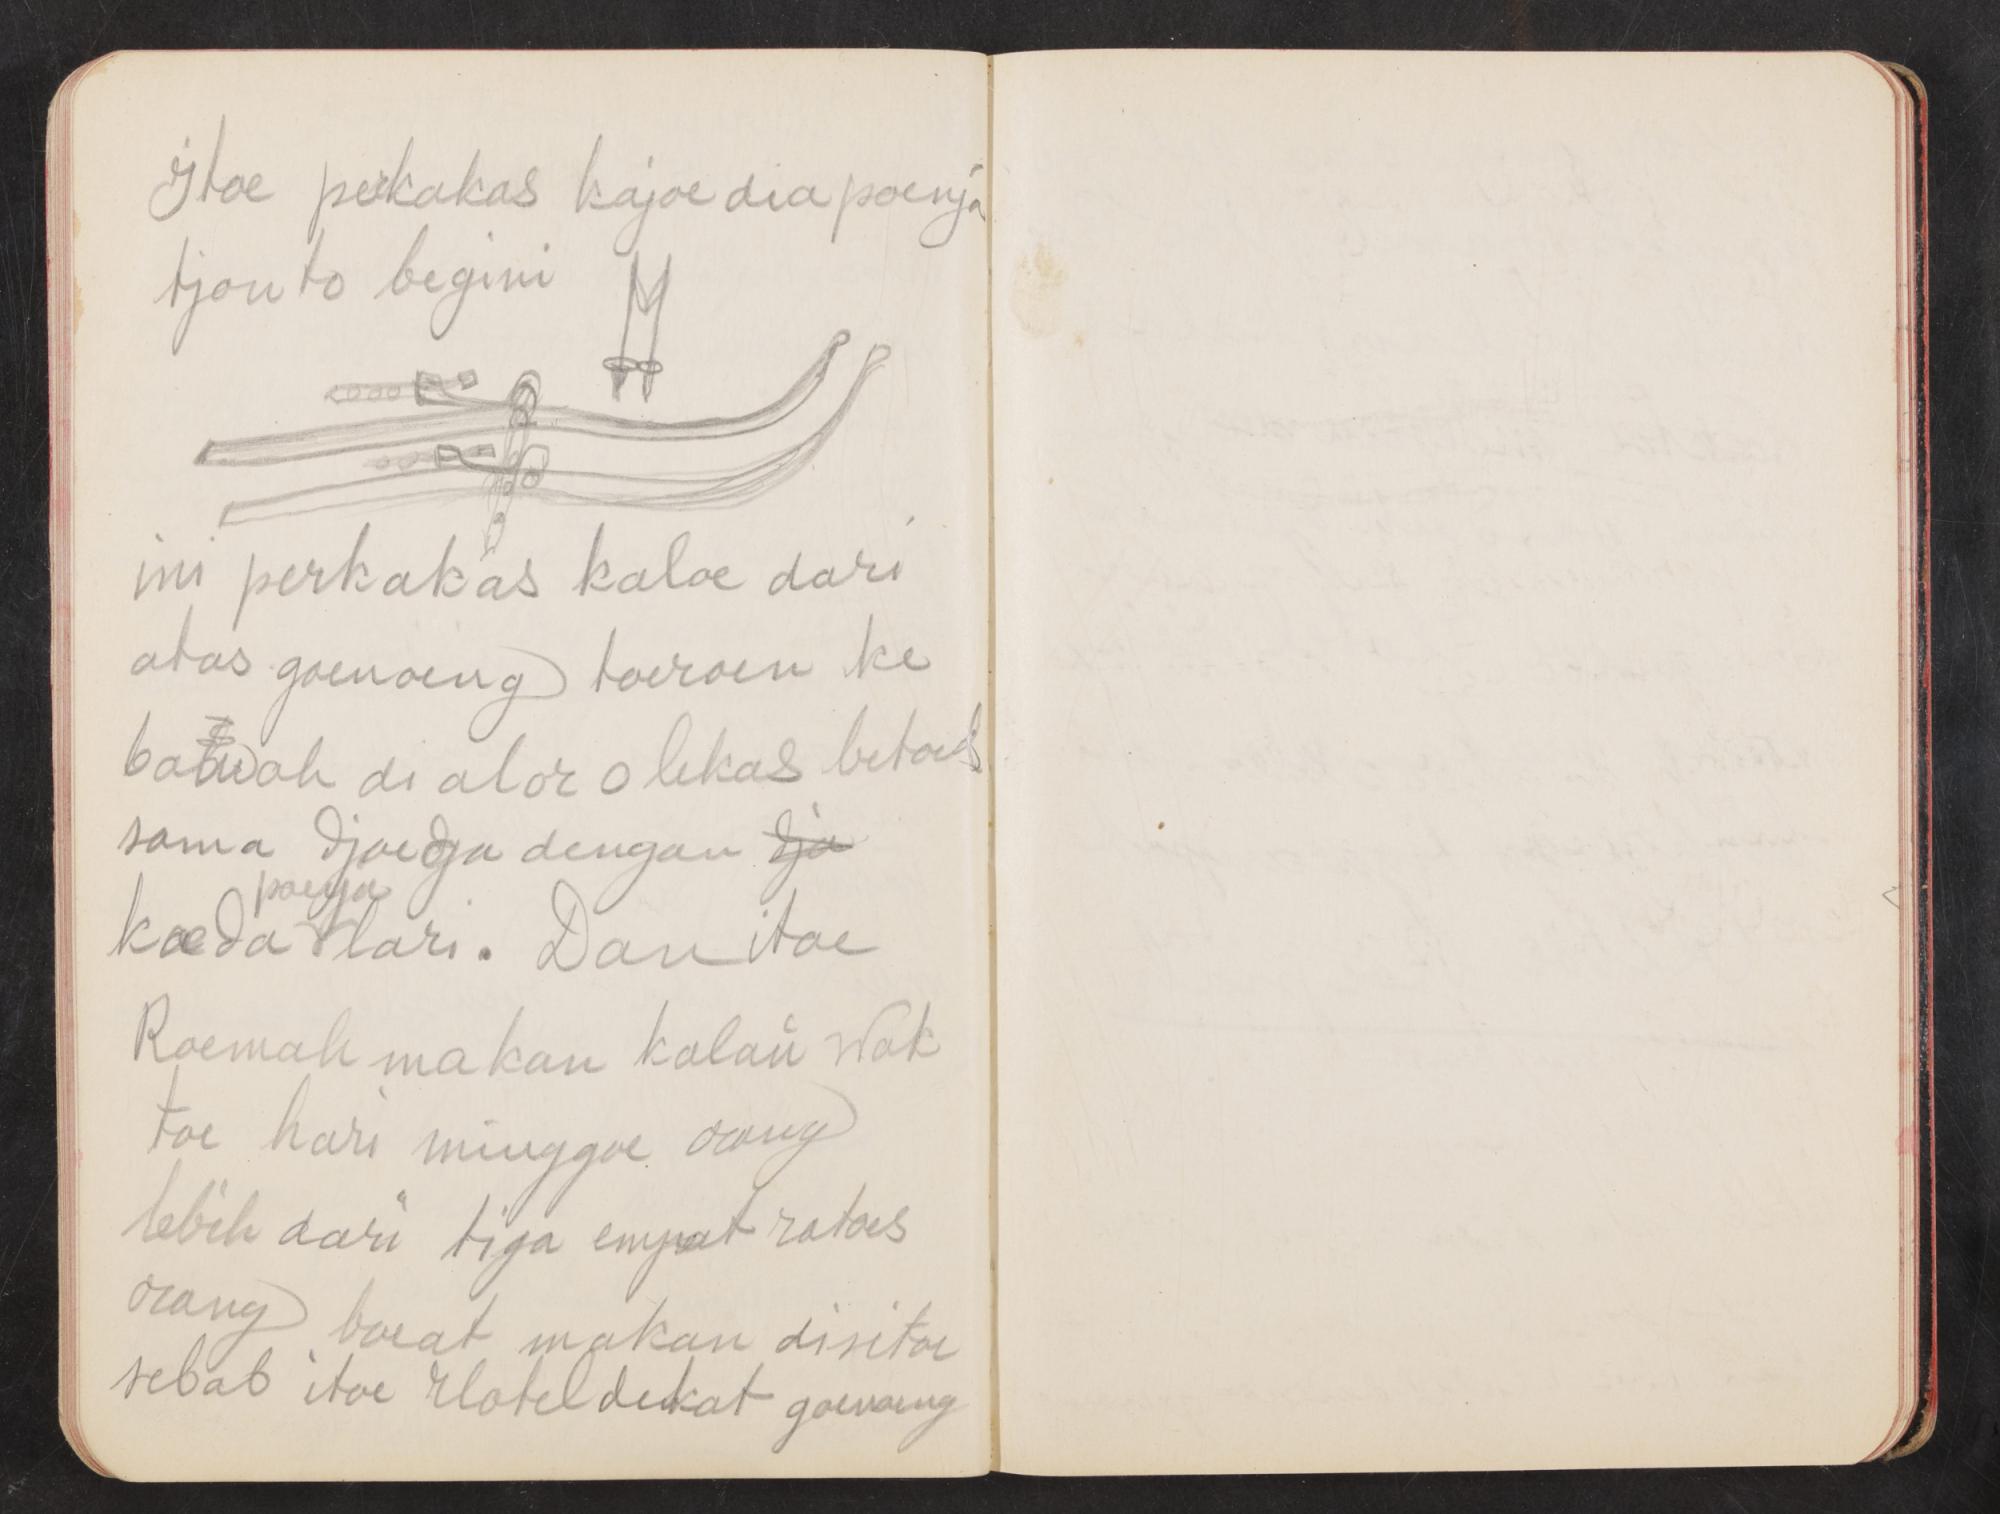 Itoe perkakas kajoe dia poenja
tjonto begini
ini perkakas kaloe dari
atas goenoeng toeroen ke
bawah di alor o lekas betoel
sama djoega dengan dja
poenja
koeda lari. Dan itoe
Roemah makan kalau wak
toe hari minggoe orang
lebih dari tiga empat ratoes
orang boeat makan disitoe
sebab itoe Hotel dekat goenoeng